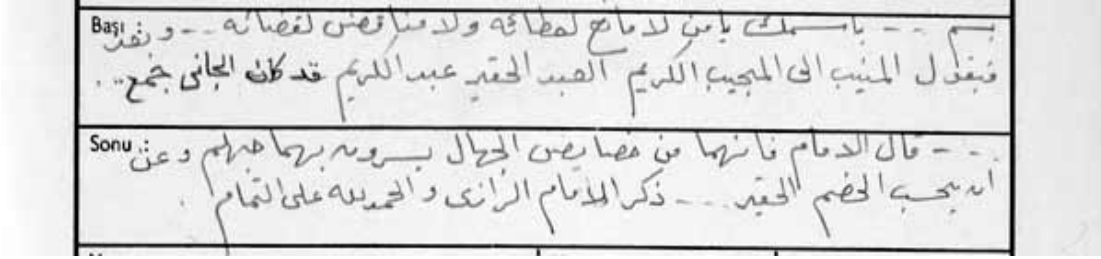 Başı بسم ... باسمك يا من لا مانع لعطائه ولا مناقض لقضائه ... وبعد
فيقول المنيب الى المجيب الكريم العبد الحقير عبد الكريم قد كان الجانى جمع ...
Sonu ... قال الامام فانهما من خصايص الجهال يسرون بهما جهلهم وعن
ان يحسب الخصم الحقير ... ذكر الامام الرازى والحمد لله على التمام